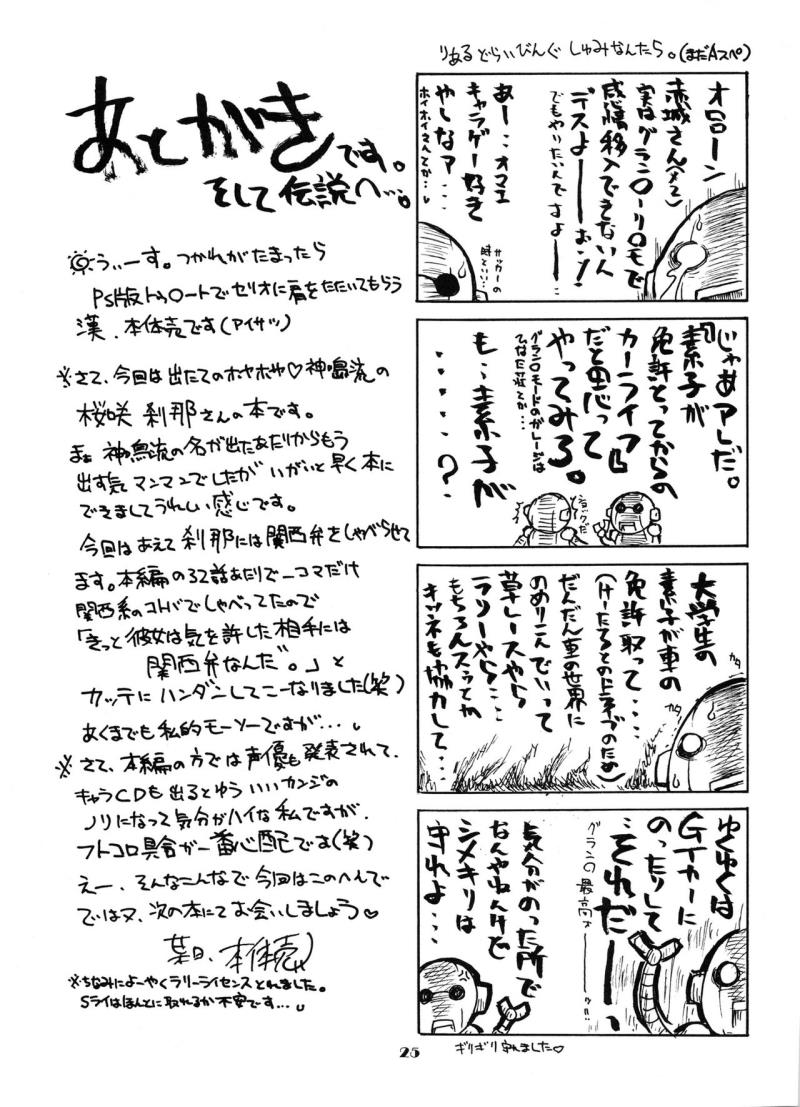 あとがきです。
そして伝説へ…。
うぃーす。つかれがたまったら
PS版トゥ○ートでセリオに肩をたたいてもらう
漢、本体売です(アイサツ)
※さて、今回は出たてのホヤホヤ♡神鳴流の
桜咲 刹那さんの本です。
まぁ 神鳴流の名が出たあたりからもう
出す気マンマンでしたが いがいと早く本に
できましてうれしい感じです。
今回はあえて 刹那には関西弁をしゃべらせて
ます。本編の32話あたりで一コマだけ
関西系のコトバでしゃべってたので
「きっと彼女は気を許した相手には
関西弁なんだ。」と
カッテにハンダンしてこーなりました(笑)
あくまでも私的モーソーですが…
※さて、本編の方では声優も発表されて、
キャラCDも出るとゆういいカンジの
ノリになって気分がハイな私ですが、
フトコロ具合が一番心配です(笑)
えー、そんなこんなで今回はこのへんで
ではヌ、次の本にてお会いしましょう♡
某日、本体売
※ちなみによーやくラリーライセンスとれました。
Sライはほんとに取れるか不安です…
りあるどらいびんぐ しゅみなんたら。(まだAスペ)
オロローン
赤城さん(メそ)
実はグラン○ーリ○モで
感情移入できないん
デスよーーおっ!
でもやりたいんですよーー
あー…オマエ
キャラゲー好き
やしなァ…
ホイホイさんとか…
サッカーの
時といい…
じゃあアレだ。
『素子が
免許とってからの
カーライフ』
だと思って
やってみろ。
グラン○モードのガレージは
ひなた荘でとか…
も…素子が
……?
ショックだ
大学生の
素子が車の
免許取って…
(けーたろとのドライブのため)
だんだん車の世界に
のめりこんでいって
草レースやら
ラリーやら…
もちろんスゥとか
キツネも協力して…
カタ
カタ
ゆくゆくは
GTカーに
のったりして
…それだーーっ
グラン○最高ォーーッ!!
気分がのった所で
なんやねんけど
シメキリは
守れよ…
ギリギリ守れました♡
25